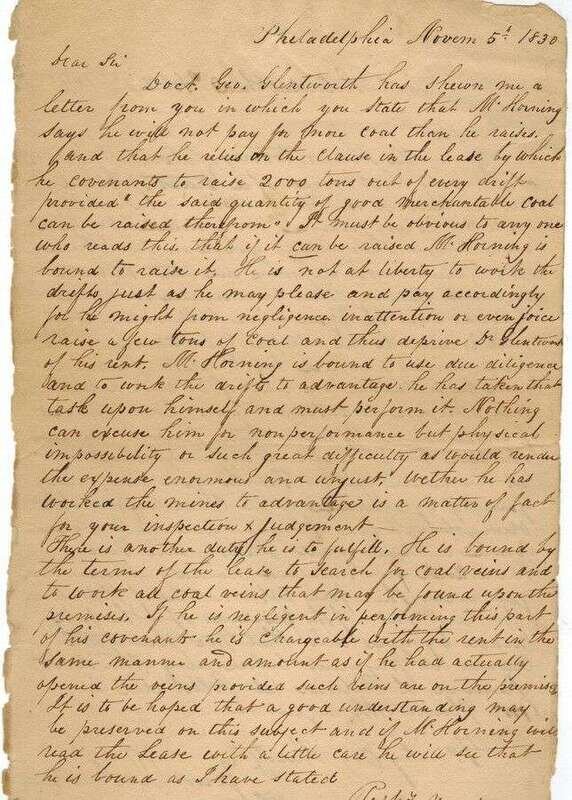 Philadelphia Novem 5th 1830
Dear Sir
Doct. Geo. Glentworth has shewn me a
letter from you in which you state that Mr Horning
says he will not pay for more coal than he raises.
and that he relies on the clause in the lease by which
he covenants to raise 2000 tons out of every drift
provided "the said quantity of good merchantable coal
can be raised therefrom". It must be obvious to any one
who reads this, that if it can be raised Mr Horning is
bound to raise it. He is not at liberty to work the
drefts just as he may please and pay accordingly
for he might from negligence inattention or even
raise a few tons of coal and thus deprive Dr Glentworth
of his rent. Mr Horning is bound to use due diligence
and to work the drifts to advantage. he has taken that
task upon himself and must perform it. Nothing
can excuse him for nonperformance but physical
impossibility or such great difficulty as would render
the expense enormous and unjust. Wether he has
worked the mines to advantage is a matter of fact
for your inspection & judgement
There is another duty he is to fulfill. He is bound by
the terms of the lease to search for coal veins and
to work all coal veins that may be found upon the
premises. If he is negligent in performing this part
of his covenant he is chargeable with the rent in the
same manner and amount as if he had actually
opened the veins provided such veins are on the premises
It is to be hoped that a good understanding may
be preserved on this subject and if Mr Horning will
read the Lease with a little care he will see that
he is bound as I have stated